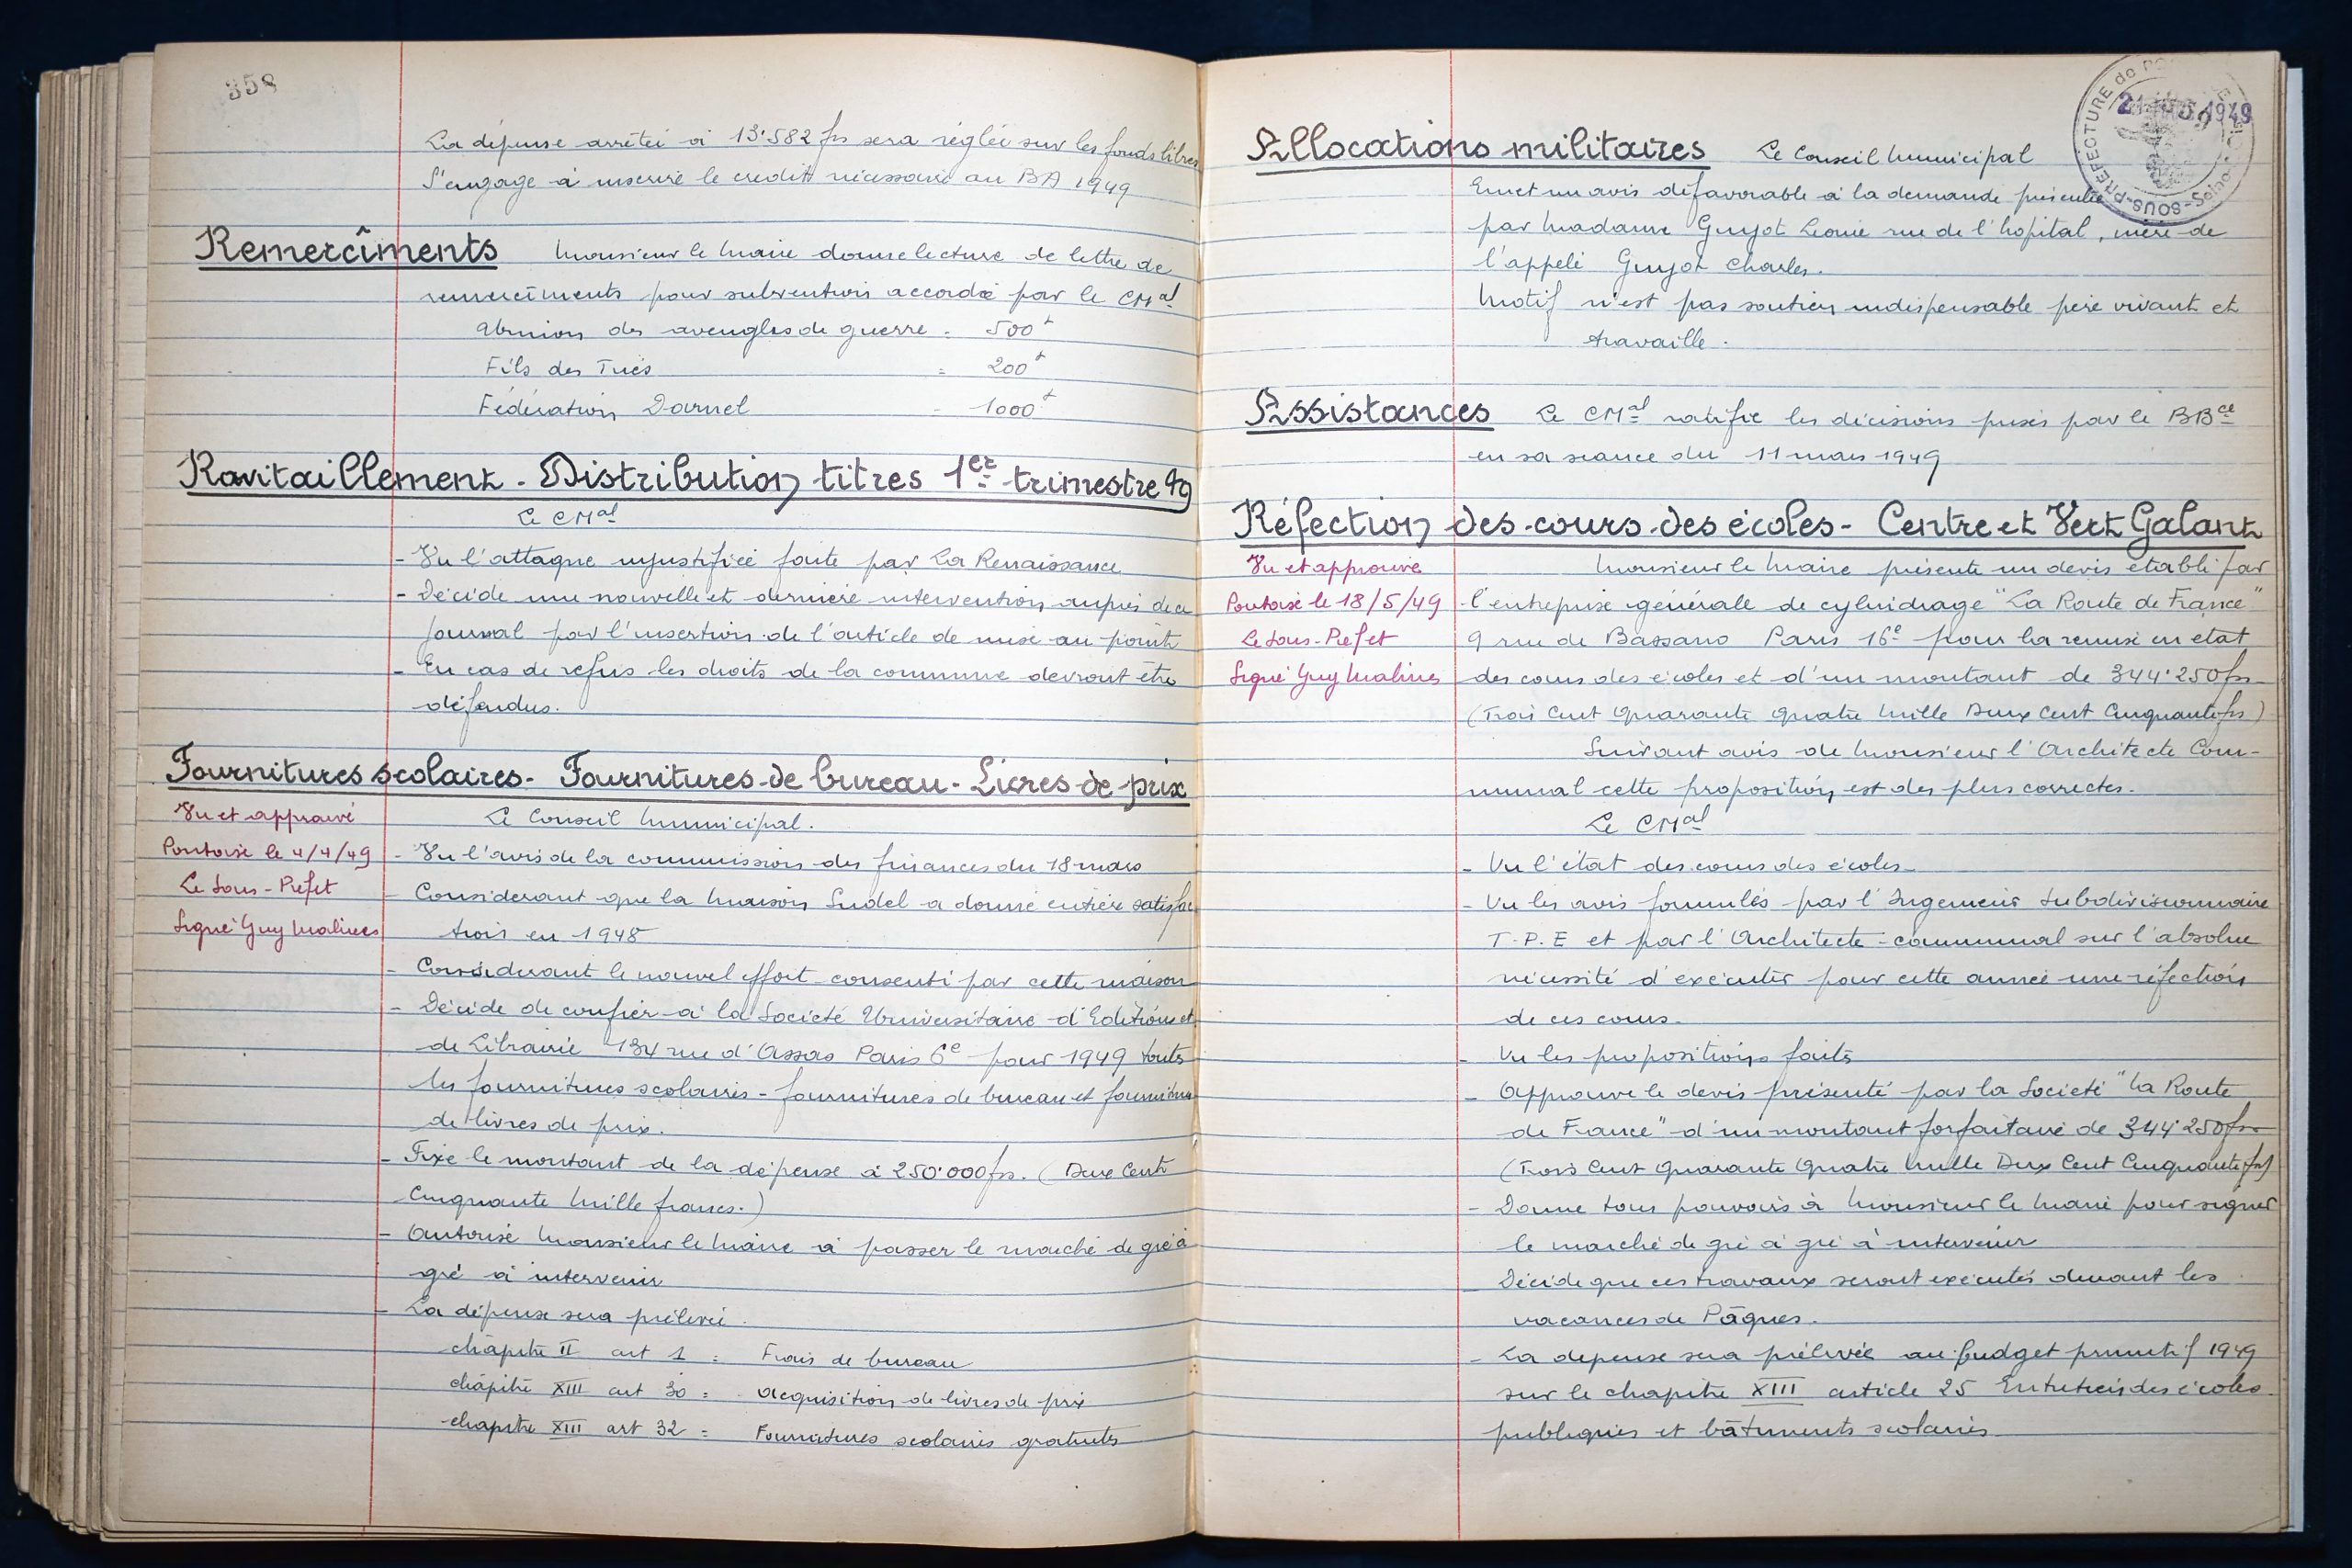 358
La dépense arrêtée à 13.582 frs sera réglée sur les fonds libres
S'engage à inscrire le crédit nécessaire au BA 1949
Remercîments Monsieur le Maire donne lecture de lettre de
remercîments pour subvention accordée par le CMal
Union des aveugles de guerre = 500f
Fils des Tués = 200f
Fédération = 1000f
Ravitaillement - Distribution titres 1er trimestre 49
Le CMal
- Vu l'attaque injustifiée faite par La Renaissance
- Décide une nouvelle et dernière intervention auprès de ce
journal par l'insertion de l'article de mise au point
- En cas de refus les droits de la commune devront être
défendus.
Fournitures scolaires - Fournitures de bureau - Livres de prix
Vu et approuvé
Pontoise le 4/4/49
Le Sous-Préfet
Signé Guy Malines
Le Conseil Municipal.
- Vu l'avis de la commission des finances du 18 mars
- Considerant que la Maison Sudel a donné entière satisfac
tion en 1948
- Considerant le nouvel effort consenti par cette maison
- Décide de confier à la Société Universitaire d'Editions et
de Librairie 134 rue d'Assas Paris 6e pour 1949 toutes
les fournitures scolaires - fournitures de bureau et fournitures
de livres de prix.
- Fixe le montant de la dépense à 250.000 frs. (Deux Cent
Cinquante Mille francs.)
- Autorise Monsieur le Maire à passer le marché de gré à
gré à intervenir
- La dépense sera prélevée.
chapitre II art 1 = Frais de bureau
chapitre XIII art 30 = Acquisition de livres de prix
chapitre XIII art 32 = Fournitures scolaires gratuites
SOUS-PRÉFECTURE de
1949
Allocations militaires Le Conseil Municipal
Emet un avis défavorable à la demande présentée
par Madame Guyot Léonie rue de l'hopital, mère de
l'appelé Guyot Charles.
Motif n'est pas soutien indispensable père vivant et
travaille.
Assistances Le CMal ratifie les décisions prises par le BBce
en sa séance du 11 mars 1949
Réfection des cours des écoles - Centre et Vert Galant
Vu et approuvé
Pontoise le 18/5/49
Le Sous-Préfet
Signé Guy Malines
Monsieur le Maire présente un devis établi par
l'entreprise générale de cylindrage "La Route de France"
9 rue de Bassano Paris 16e pour la remise en état
des cours des écoles et d'un montant de 344.250 frs
(Trois Cent Quarante Quatre Mille Deux Cent Cinquante frs)
Suivant avis de Monsieur l'Architecte Com-
munal cette proposition est des plus correctes.
Le CMal
- Vu l'état des cours des écoles
- Vu les avis formulés par l'Ingénieur Subdivisionnaire
T.P.E et par l'Architecte communal sur l'absolue
nécessité d'exécuter pour cette année une réfection
de ces cours.
- Vu les propositions faites
- Approuve le devis présenté par la Société "La Route
de France" d'un montant forfaitaire de 344.250 frs
(Trois Cent Quarante Quatre Mille Deux Cent Cinquante frs)
- Donne tous pouvoirs à Monsieur le Maire pour signer
le marché de gré à gré à intervenir
Décide que ces travaux seront exécutés durant les
vacances de Pâques.
- La dépense sera prélevée au budget primitif 1949
sur le chapitre XIII article 25 Entretien des écoles
publiques et bâtiments scolaires